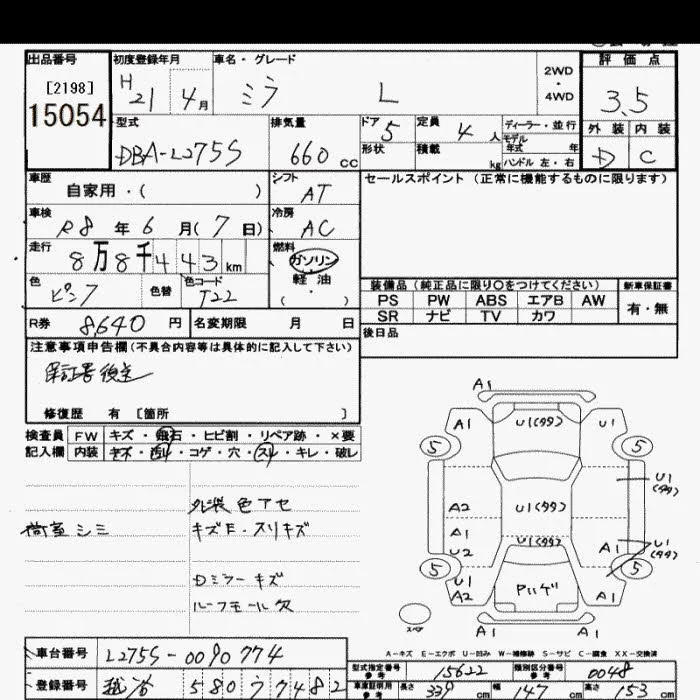 出品番号 初度登録年月 車名・グレード 評価点
[2198] H 21 4月 ミラ L 2WD・4WD 3.5
15054
型式 排気量 ドア 5 定員 4人 ディーラー・並行 外装 内装
DBA-L275S 660cc 形状 積載 kg モデル年式 年 D C
ハンドル 左・右
車歴 シフト セールスポイント(正常に機能するものに限ります)
自家用・( ) AT
車検 冷房
R8年6月(7日) AC
走行 燃料
8万8千443km ガソリン
軽油
( ・ )
色 色替 色コード
ピンク T22
装備品(純正品に限り○をつけてください) 新車保証書
PS PW ABS エアB AW 有・無
SR ナビ TV カワ
R券 8640円 名変期限 月 日 後日品
注意事項申告欄(不具合内容等は具体的に記入して下さい)
保証書後送
修復歴 有 [箇所 ]
検査員 FW キズ・飛石・ヒビ割・リペア跡・×要
記入欄 内装 キズ・・コゲ・穴・スレ・キレ・破レ
外装色アセ
荷室シミ キズE・スリキズ
Dミラーキズ
ルーフモール欠
A1
A1 U1(タタ) U1
5 5
U1(タタ)
A2 U1(タタ)
A1 U1(タタ) A1 U1(タタ)
U2
5 5
U1
A2 Pハゲ A1
スペア A1
A-キズ E-エクボ U-凹み W-補修跡 S-サビ C-腐食 XX-交換済
車台番号 L275S-0090774 型式指定番号 参考 15622 類別区分番号 参考 0048
登録番号 580 7482 車庫証明用 参考 長さ 339cm 幅 147cm 高さ 153cm